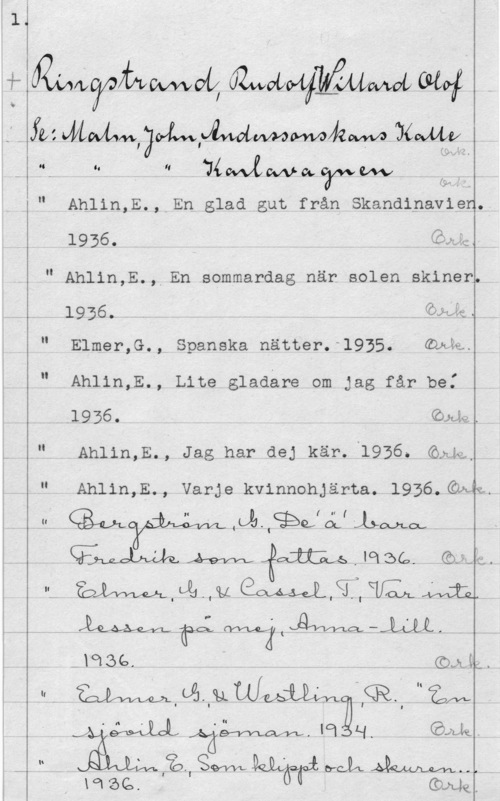 1.
+ Ringstrand, Rudolf Willard Olof
Se: Malm, John, Anderssonskans Kalle
Ork.
" " " Karlavagnen
Ork.
" Ahlin,E., En glad gut från Skandinavien.
1936. Ork.
" Ahlin,E., En sommardag när solen skiner.
1936. Ork.
" Elmer,G., Spanska nätter. 1935. Ork.
" Ahlin,E., Lite gladare om jag får be!
1936. Ork.
" Ahlin,E., Jag har dej kär. 1936. Ork.
" Ahlin,E., Varje kvinnohjärta. 1936. Ork.
" Bergström, G., De' ä' bara
Fredrik som fattas. 1936. Ork.
" Eahmer, G., & Cassel, T., Var inte
lessen på mej, Anna-lill.
1936. Ork.
" Eahmer, G., & Westling, R., "En
sjövild sjöman. 1934. Ork.
" Ahlin, E., Som klippt och skuren...
1936. Ork.